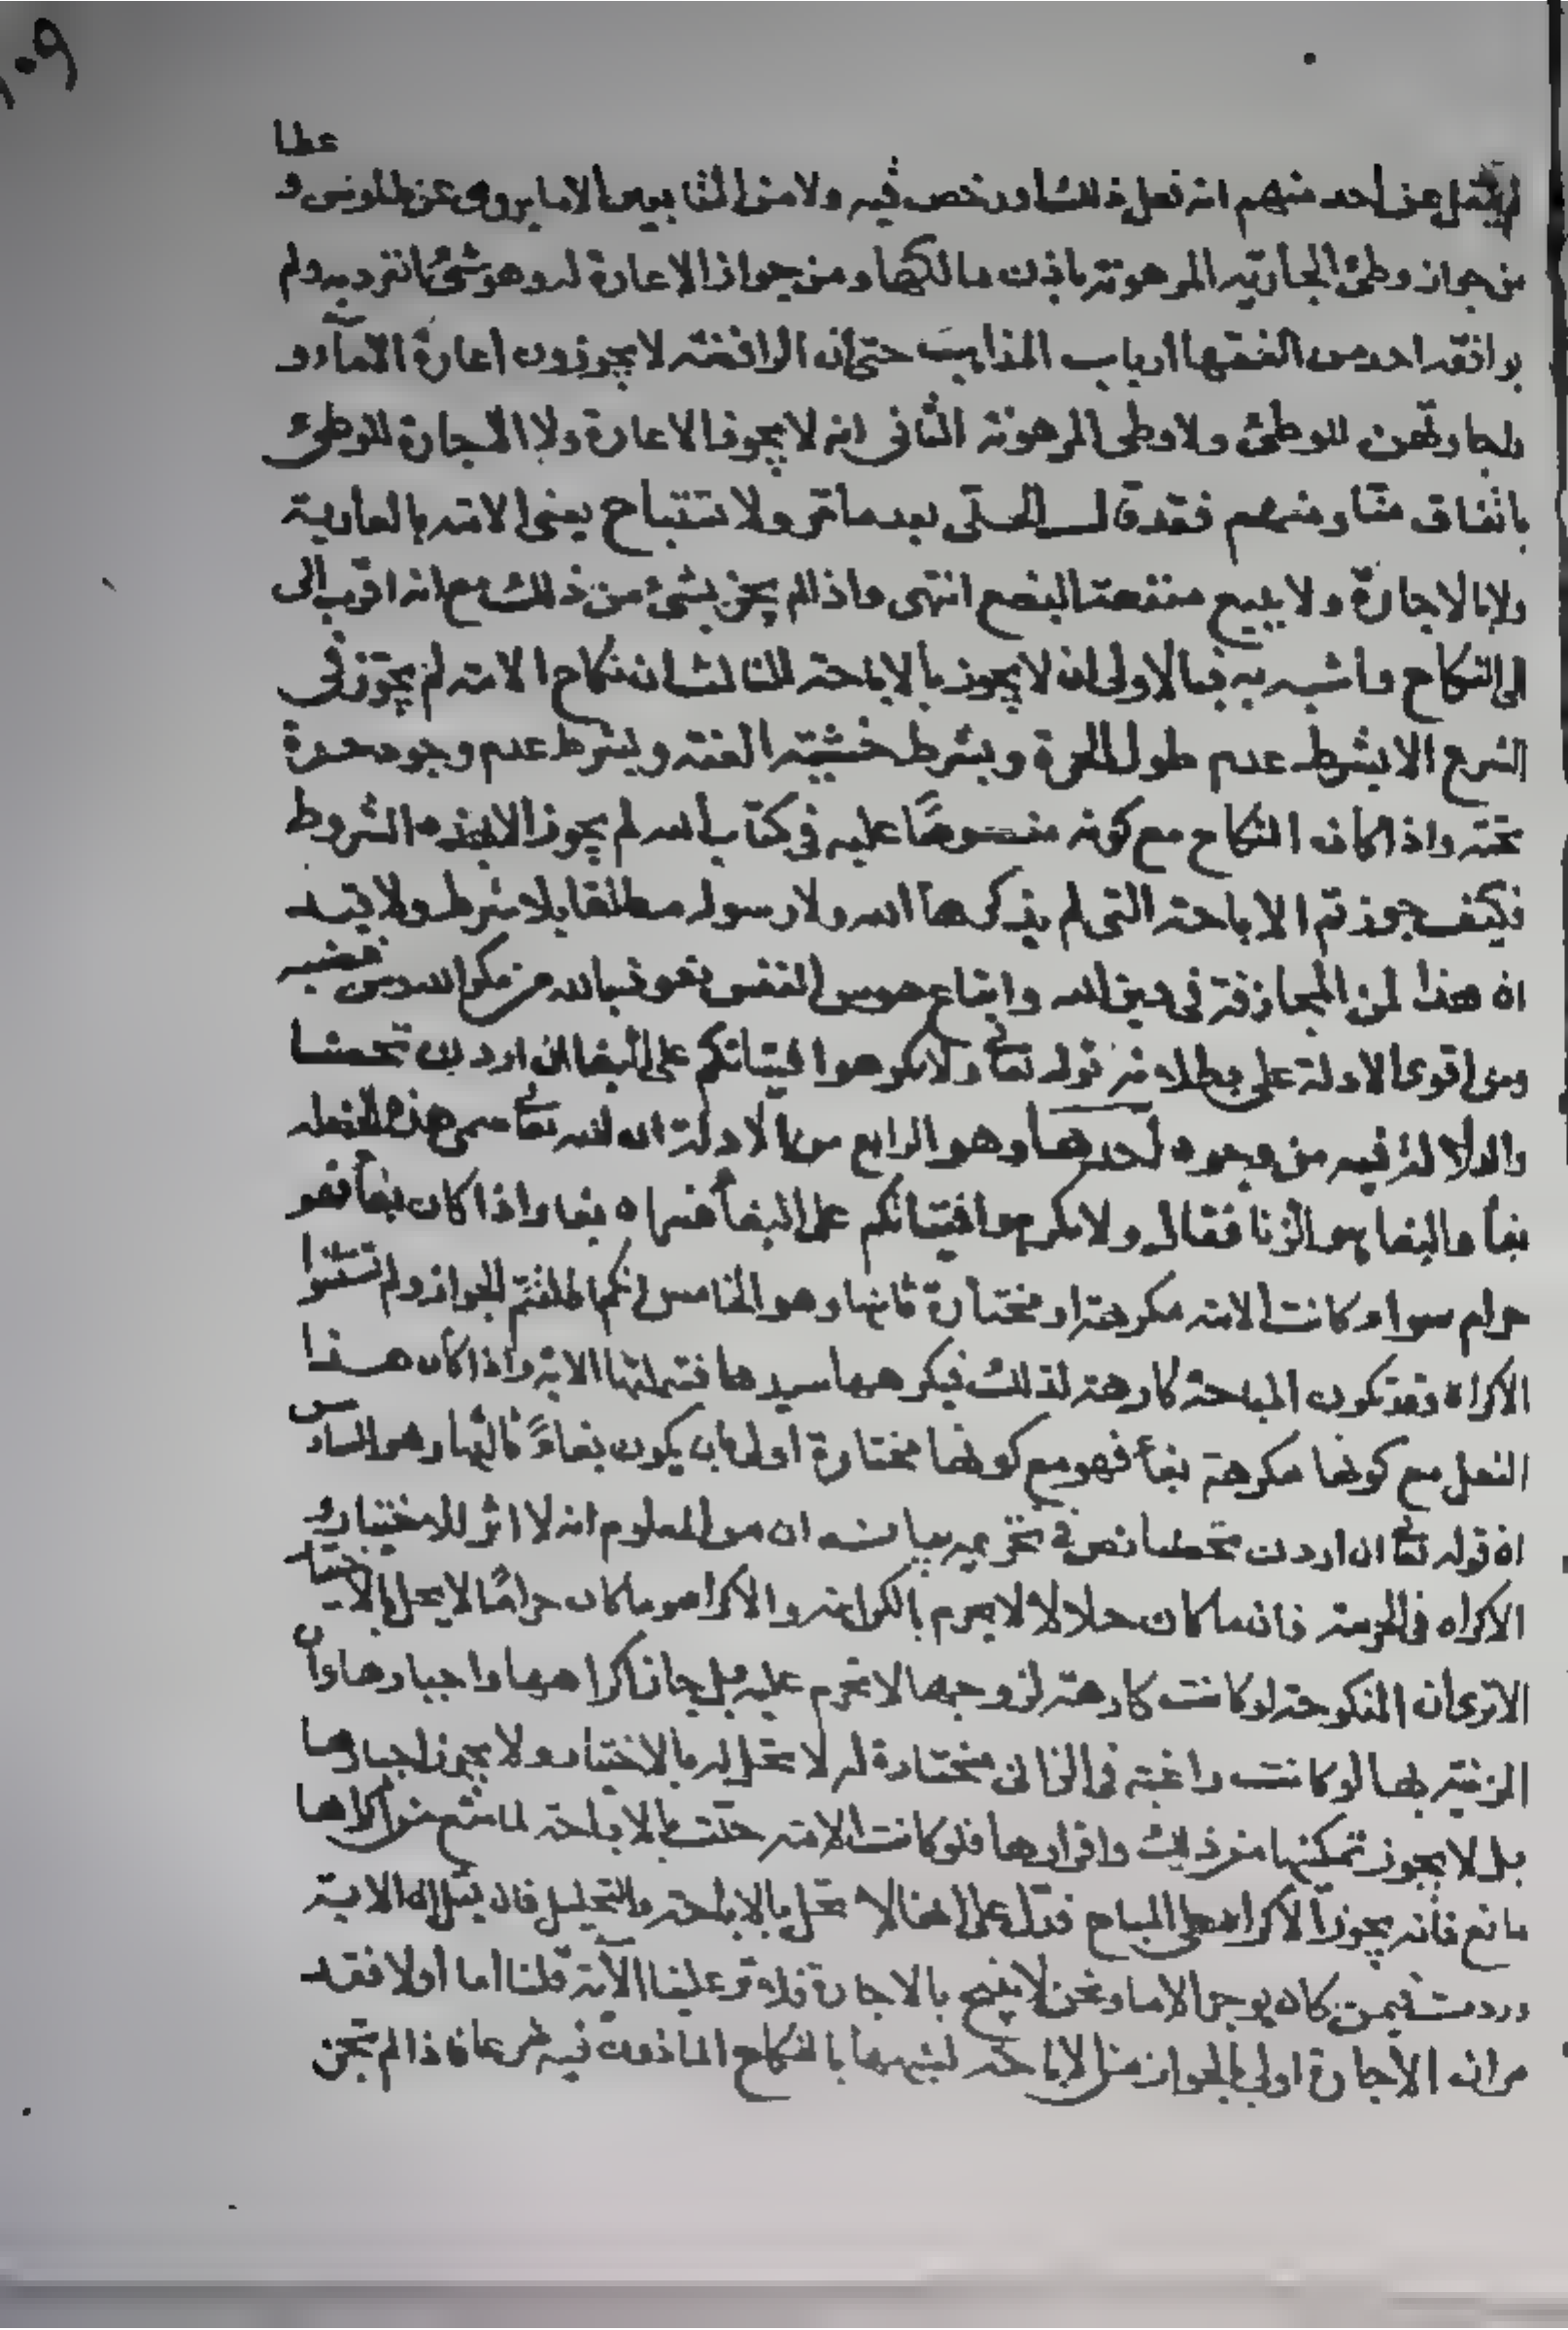 ١٠٩
عطا
لم ينقل عن احد منهم انه فعل ذلك او رخص فيه ولا من التابعين الا ما يروى عن طاوس و
من جواز وطئ الجارية المرهونة باذن مالكها ومن جواز الاعارة له وهو شئ انفرد به ولم
يوافقه احد من الفقها ارباب المذاهب حتى ان الرافضة لا يجوزون اعارة الامآء و
اجارتهن للوطئ ولا وطى المرهونة الثانى انه لا يجوز الاعارة ولا الاجارة للوطئ
باتفاق منا ومنهم فقد قال الحلى بعد ما مر ولا تستباح يعنى الامة بالعارية
ولا بالاجارة ولا ببيع منفعة البضع انتهى واذا لم يجز بشئ من ذلك مع انه اقرب الى
الى النكاح واشبه به فبالاولى ان لا يجوز بالاباحة الثالث ان نكاح الامة لم يجوز فى
الشرع الا بشرط عدم طول الحرة وبشرط خشية العنة وبشرط عدم وجود حرة
تحته واذا كان النكاح مع كونه منصوصًا عليه فى كتاب الله لم يجوز الا بهذه الشروط
فكيف جوزتم الاباحة التى لم يذكرها الله ولا رسوله مطلقا بلا شرط ولا قيد
ان هذا لمن المجازفة فى دين الله واتباع هوس النفس نعوذ بالله من مكر الله ومن غضبه
ومن اقوى الادلة على بطلانه قوله تعا ولا تكرهوا فتياتكم على البغا ان اردن تحصنا
والدلالة فيه من وجوه احدها وهو الرابع من الادلة ان الله تعا سمى هذه الفعلة
بغأ والبغا هو الزنا فقال ولا تكرهوا فتياتكم على البغأ فسماه بغا واذا كان بغأ فهو
حرام سوا كانت الامة مكرهة او مختارة ثانيها وهو الخامس انكم اطلقتم الجواز ولم تستثنوا
الاكراه وقد تكون المباحة كارهة لذلك فيكرهها سيدها فتشملها الاية واذا كان هذا
الفعل مع كونها مكرهة بغأ فهو مع كونها مختارة اولى بان يكون بغاءً ثالثها وهو السادس
ان قوله تعا ان اردن تحصنا نص فى تحريمه بيانه ان من المعلوم انه لا اثر للاختيار و
الاكراه فى الحرمة فان ما كان حلالا لا يحرم بالكراهة والاكراه وما كان حرامًا لا يحل بالاختيار
الا ترى ان المنكوحة لو كانت كارهة لزوجها لا تحرم عليه بل جاز اكراهها واجبارها وان
المزنية بها لو كانت راغبة فى الزانى مختارة له لا تحل له بالاختيار ولا يجوز اجبارها
بل لا يجوز تمكينها من ذلك واقرارها فلو كانت الامة حلت بالاباحة لما منع من اكراهها
مانع فانه يجوز الاكراه على المباح فدل على انها لا تحل بالاباحة والتحليل فان قيل ان الاية
وردت فيمن كان يوجر الاما ونحن لا نبيح بالاجارة فلا ترد علينا الآية قلنا اما اولا فقد
مر ان الاجارة اولى بالجواز من الاباحة لشبهها بالنكاح الماذون فيه شرعا فاذا لم تجز